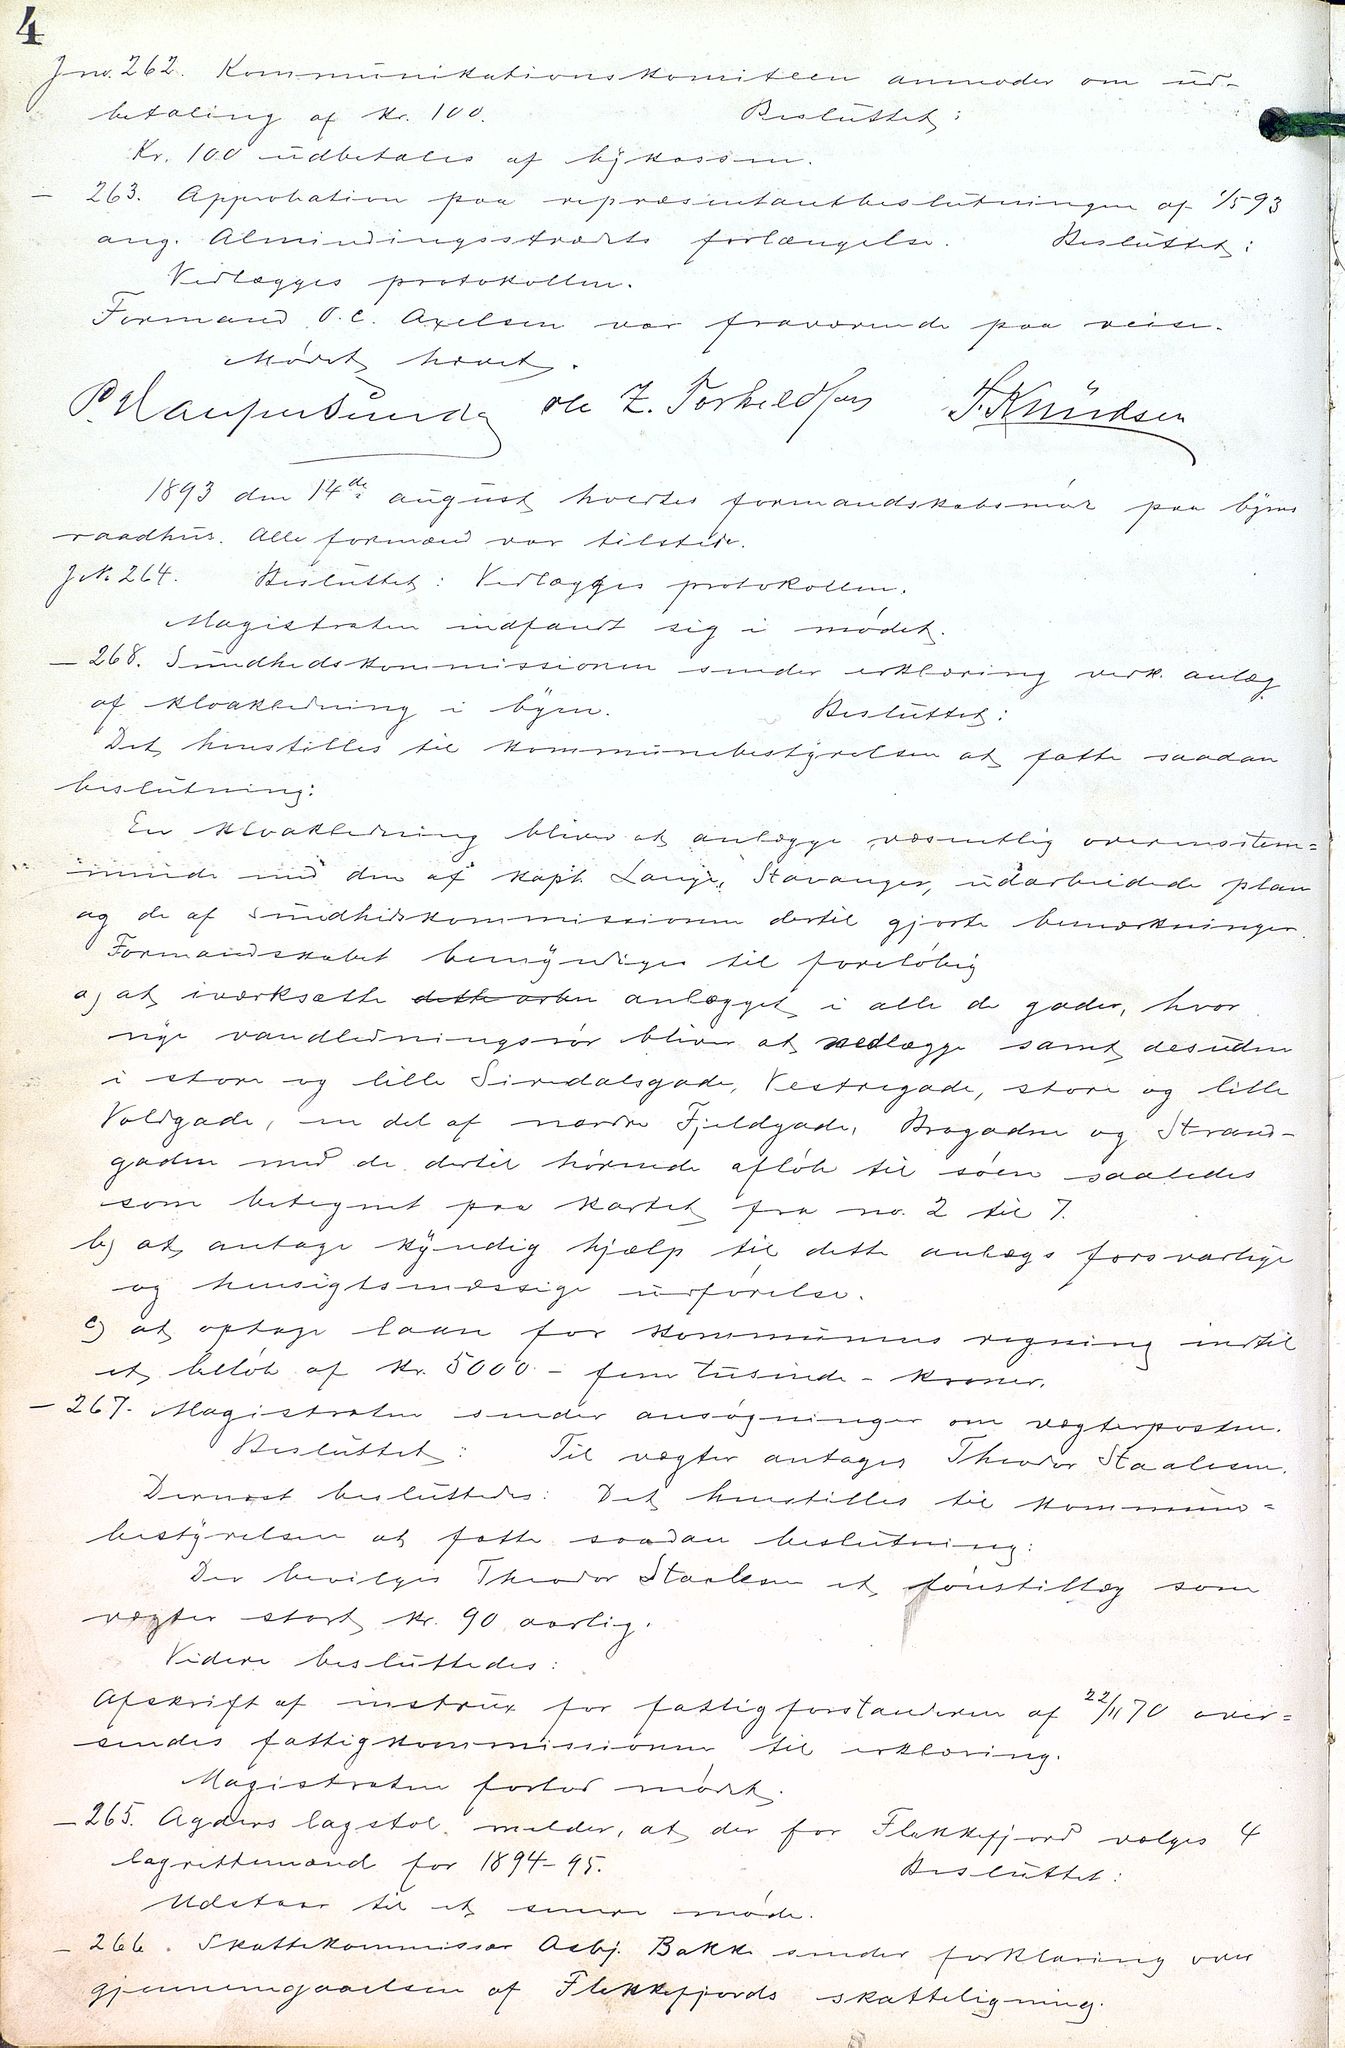 4
J no. 262. Kommunikationskomiteen anmoder om ud-
betaling af kr. 100. Besluttet:
Kr. 100 udbetales af bykassen.
— 263. Approbation paa repræsentantbeslutningen af 1/5 93
ang. Almindingsstrædets forlængelse. Besluttet:
Vedlægges protokollen.
Formand O. C. Axelsen var fraværende paa reise.
Mødet hævet.
Ole Z. Torkeldsen J. Knudsen
1893 den 14de august holdtes formandskabsmøde paa byens
raadhus. Alle formænd var tilstede.
J. No. 264. Besluttet: Vedlægges protokollen.
Magistraten indfandt sig i mødet.
— 268. Sundhedskommissionen sender erklæring vedk. anlæg
af kloakledning i byen. Besluttet:
Det henstilles til kommunebestyrelsen at fatte saadan
beslutning:
En kloakledning bliver at anlægge væsentlig overensstem=
mende med den af kapt. Lange, Stavanger, udarbeidede plan
og de af sundhedskommissionen dertil gjorte bemærkninger.
Formandskabet bemyndiges til foreløbig
a) at iværksætte dette arbei anlægget i alle de gader, hvor
nye vandledningsrør bliver at nedlægge samt desuden
i store og lille Siredalsgade, Vestregade, store og lille
Voldgade, en del af nordre Fjeldgade, Brogaden og Strand-
gaden med de dertil hørende afløb til søen saaledes
som betegnet paa kartet fra no. 2 til 7.
b) at antage kyndig hjælp til dette anlægs forsvarlige
og hensigtsmæssige udførelse.
c) at optage laan for kommunens regning indtil
et beløb af kr. 5000 – fem tusinde – kroner.
— 267. Magistraten sender ansøgninger om vægterposten.
Besluttet: Til vægter antages Theodor Staalesen.
Dernæst besluttedes: Det henstilles til kommune=
bestyrelsen at fatte saadan beslutning:
Der bevilges Theodor Staalesen et lønstillæg som
vægter stort kr. 90 aarlig.
Videre besluttedes:
Afskrift af instrux for fattigforstanderen af 22/11 70 over=
sendes fattigkommissionen til erklæring.
Magistraten forlod mødet.
— 265. Agders lagstol. melder, at der for Flekkefjord vælges 4
lagrettemænd for 1894–95. Besluttet:
Udstaar til et senere møde.
— 266. Skattekommissær Asbj. Bakke sender forklaring over
gjennemgaaelsen af Flekkefjords skatteligning.